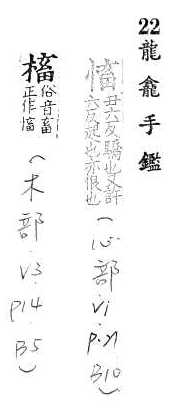 22龍龕手鑑
慉丑六反驕也又許六反起也亦恨也(心部.V1 P.21 B10)
槒俗音畜正作慉(木部.V3.P14.B5)